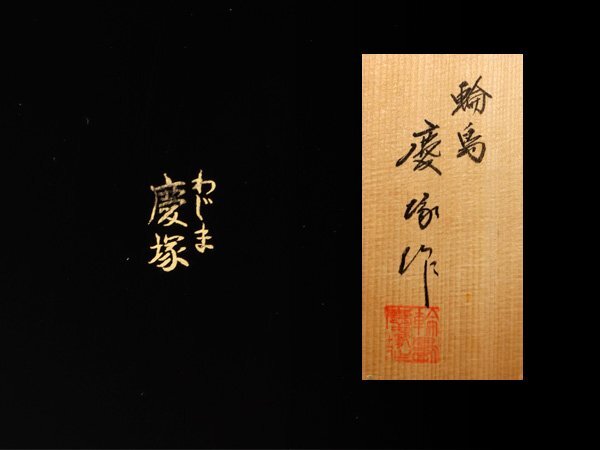 わじま
慶塚
輪島
慶塚作